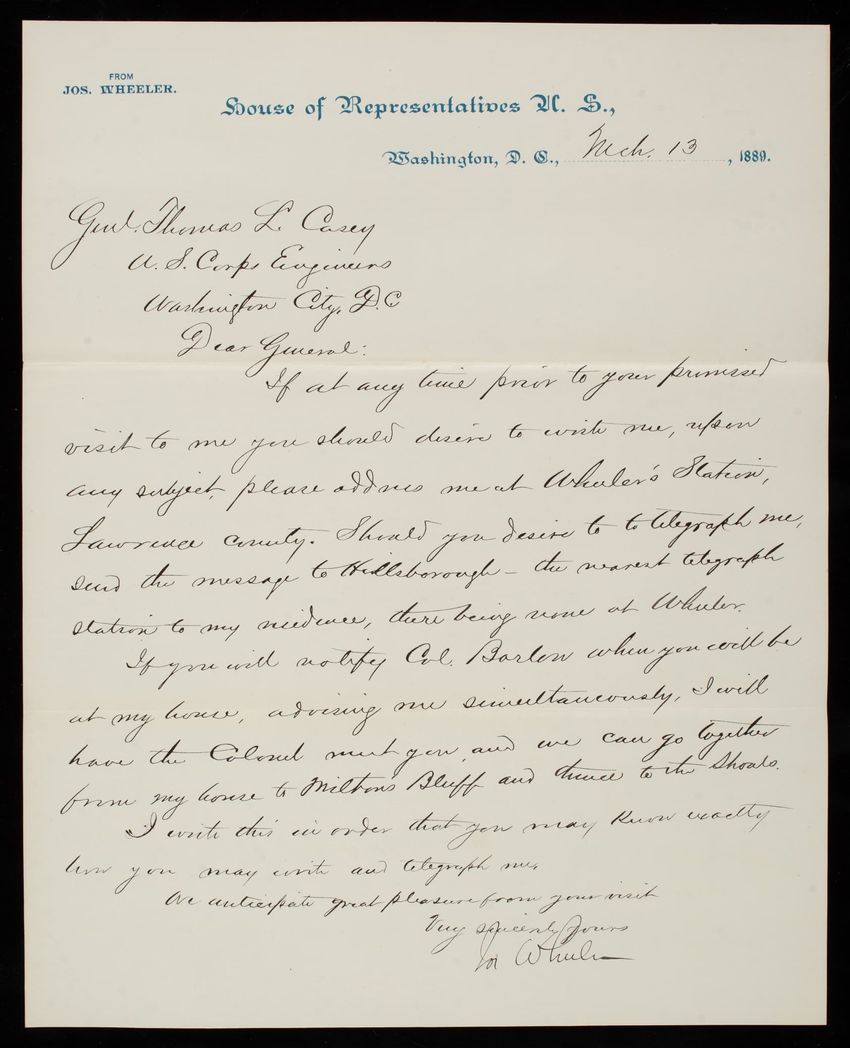 FROM
JOS. WHEELER.
House of Representatives U. S.,
Washington, D. C., Mch. 13, 1889.
Genl. Thomas L. Casey
U. S. Corps Engineers
Washington City, D.C
Dear General:
If at any time prior to your promised
visit to me you should desire to write me, upon
any subject, please address me at Wheeler's Station,
Lawrence county. Should you desire to to telegraph me,
send the message to Hillsborough - the nearest telegraph
station to my residence, there being none at Wheeler.
If you will notify Col. Barlow when you will be
at my house, advising me simultaneously, I will
have the Colonel meet you, and we can go together
from my house to Miltons Bluff and thence to the Shoals.
I write this in order that you may know exactly
how you may write and telegraph me.
We anticipate great pleasure from your visit
Very sincerely yours
Jos Wheeler